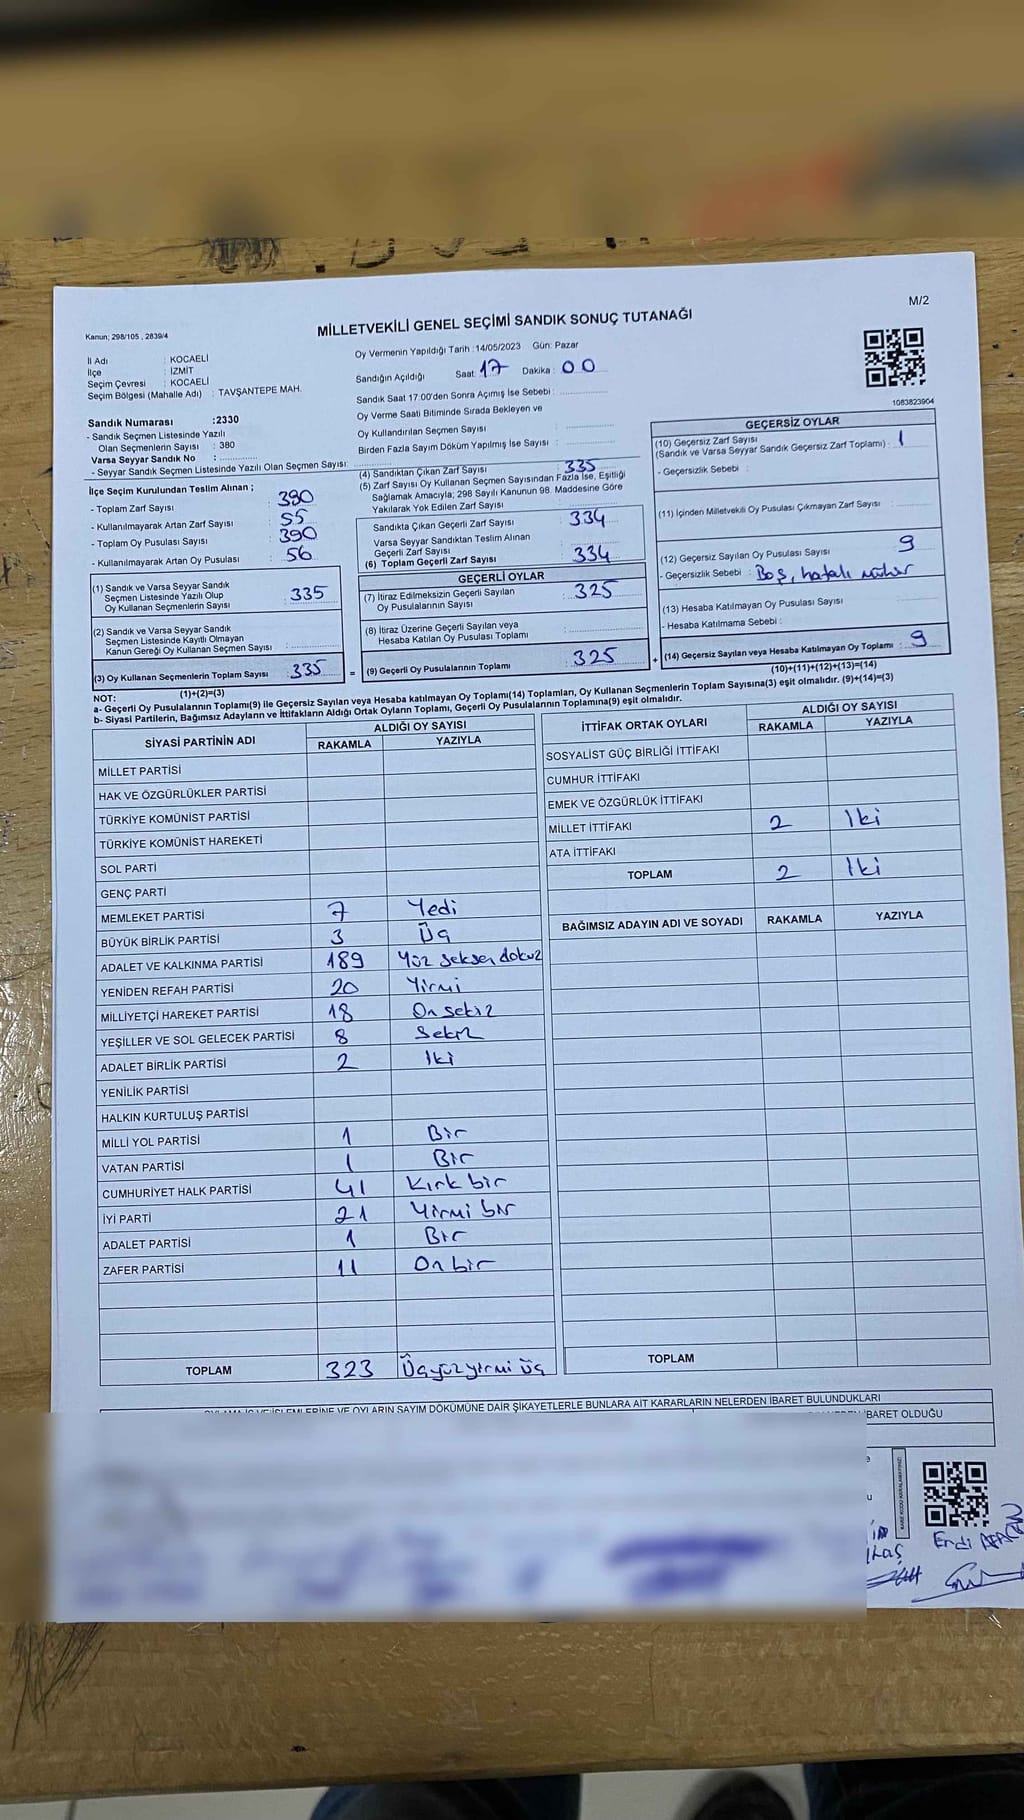 M/2
Kanun; 298/105 , 2839/4
MİLLETVEKİLİ GENEL SEÇİMİ SANDIK SONUÇ TUTANAĞI
İl Adı : KOCAELİ
İlçe : İZMİT
Seçim Çevresi : KOCAELİ
Seçim Bölgesi (Mahalle Adı) : TAVŞANTEPE MAH.
Oy Vermenin Yapıldığı Tarih :14/05/2023 Gün: Pazar
Sandığın Açıldığı Saat: 17 Dakika: 00
Sandık Saat 17:00'den Sonra Açımış İse Sebebi :
Oy Verme Saati Bitiminde Sırada Bekleyen ve
Oy Kullandırılan Seçmen Sayısı
Birden Fazla Sayım Döküm Yapılmış İse Sayısı :
1083823904
Sandık Numarası :2330
- Sandık Seçmen Listesinde Yazılı
Olan Seçmenlerin Sayısı : 380
Varsa Seyyar Sandık No :
- Seyyar Sandık Seçmen Listesinde Yazılı Olan Seçmen Sayısı:
İlçe Seçim Kurulundan Teslim Alınan ;
- Toplam Zarf Sayısı : 390
- Kullanılmayarak Artan Zarf Sayısı : 55
- Toplam Oy Pusulası Sayısı : 390
- Kullanılmayarak Artan Oy Pusulası : 56
(1) Sandık ve Varsa Seyyar Sandık
Seçmen Listesinde Yazılı Olup
Oy Kullanan Seçmenlerin Sayısı : 335
(2) Sandık ve Varsa Seyyar Sandık
Seçmen Listesinde Kayıtlı Olmayan
Kanun Gereği Oy Kullanan Seçmen Sayısı :
(3) Oy Kullanan Seçmenlerin Toplam Sayısı : 335 =
(4) Sandıktan Çıkan Zarf Sayısı : 335
(5) Zarf Sayısı Oy Kullanan Seçmen Sayısından Fazla İse, Eşitliği
Sağlamak Amacıyla; 298 Sayılı Kanunun 98. Maddesine Göre
Yakılarak Yok Edilen Zarf Sayısı
Sandıkta Çıkan Geçerli Zarf Sayısı : 334
Varsa Seyyar Sandıktan Teslim Alınan
Geçerli Zarf Sayısı
(6) Toplam Geçerli Zarf Sayısı : 334
GEÇERLİ OYLAR
(7) İtiraz Edilmeksizin Geçerli Sayılan
Oy Pusulalarının Sayısı : 325
(8) İtiraz Üzerine Geçerli Sayılan veya
Hesaba Katılan Oy Pusulası Toplamı
(9) Geçerli Oy Pusulalarının Toplamı : 325 +
GEÇERSİZ OYLAR
(10) Geçersiz Zarf Sayısı
(Sandık ve Varsa Seyyar Sandık Geçersiz Zarf Toplamı) : 1
- Geçersizlik Sebebi :
(11) İçinden Milletvekili Oy Pusulası Çıkmayan Zarf Sayısı
(12) Geçersiz Sayılan Oy Pusulası Sayısı : 9
- Geçersizlik Sebebi : Boş, hatalı mühür
(13) Hesaba Katılmayan Oy Pusulası Sayısı
- Hesaba Katılmama Sebebi :
(14) Geçersiz Sayılan veya Hesaba Katılmayan Oy Toplamı : 9
(10)+(11)+(12)+(13)=(14)
NOT: (1)+(2)=(3)
a- Geçerli Oy Pusulalarının Toplamı(9) ile Geçersiz Sayılan veya Hesaba katılmayan Oy Toplamı(14) Toplamları, Oy Kullanan Seçmenlerin Toplam Sayısına(3) eşit olmalıdır. (9)+(14)=(3)
b- Siyasi Partilerin, Bağımsız Adayların ve İttifakların Aldığı Ortak Oyların Toplamı, Geçerli Oy Pusulalarının Toplamına(9) eşit olmalıdır.
SİYASİ PARTİNİN ADI ALDIĞI OY SAYISI
RAKAMLA YAZIYLA
MİLLET PARTİSİ
HAK VE ÖZGÜRLÜKLER PARTİSİ
TÜRKİYE KOMÜNİST PARTİSİ
TÜRKİYE KOMÜNİST HAREKETİ
SOL PARTİ
GENÇ PARTİ
MEMLEKET PARTİSİ 7 Yedi
BÜYÜK BİRLİK PARTİSİ 3 Üç
ADALET VE KALKINMA PARTİSİ 189 Yüz seksen dokuz
YENİDEN REFAH PARTİSİ 20 Yirmi
MİLLİYETÇİ HAREKET PARTİSİ 18 On sekiz
YEŞİLLER VE SOL GELECEK PARTİSİ 8 Sekiz
ADALET BİRLİK PARTİSİ 2 İki
YENİLİK PARTİSİ
HALKIN KURTULUŞ PARTİSİ
MİLLİ YOL PARTİSİ 1 Bir
VATAN PARTİSİ 1 Bir
CUMHURİYET HALK PARTİSİ 41 Kırk bir
İYİ PARTİ 21 Yirmi bir
ADALET PARTİSİ 1 Bir
ZAFER PARTİSİ 11 On bir
TOPLAM 323 Üçyüzyirmi üç
İTTİFAK ORTAK OYLARI ALDIĞI OY SAYISI
RAKAMLA YAZIYLA
SOSYALİST GÜÇ BİRLİĞİ İTTİFAKI
CUMHUR İTTİFAKI
EMEK VE ÖZGÜRLÜK İTTİFAKI
MİLLET İTTİFAKI 2 İki
ATA İTTİFAKI
TOPLAM 2 İki
BAĞIMSIZ ADAYIN ADI VE SOYADI RAKAMLA YAZIYLA
TOPLAM
OYLAMA İŞ VE İŞLEMLERİNE VE OYLARIN SAYIM DÖKÜMÜNE DAİR ŞİKAYETLERLE BUNLARA AİT KARARLARIN NELERDEN İBARET BULUNDUKLARI
İBARET OLDUĞU